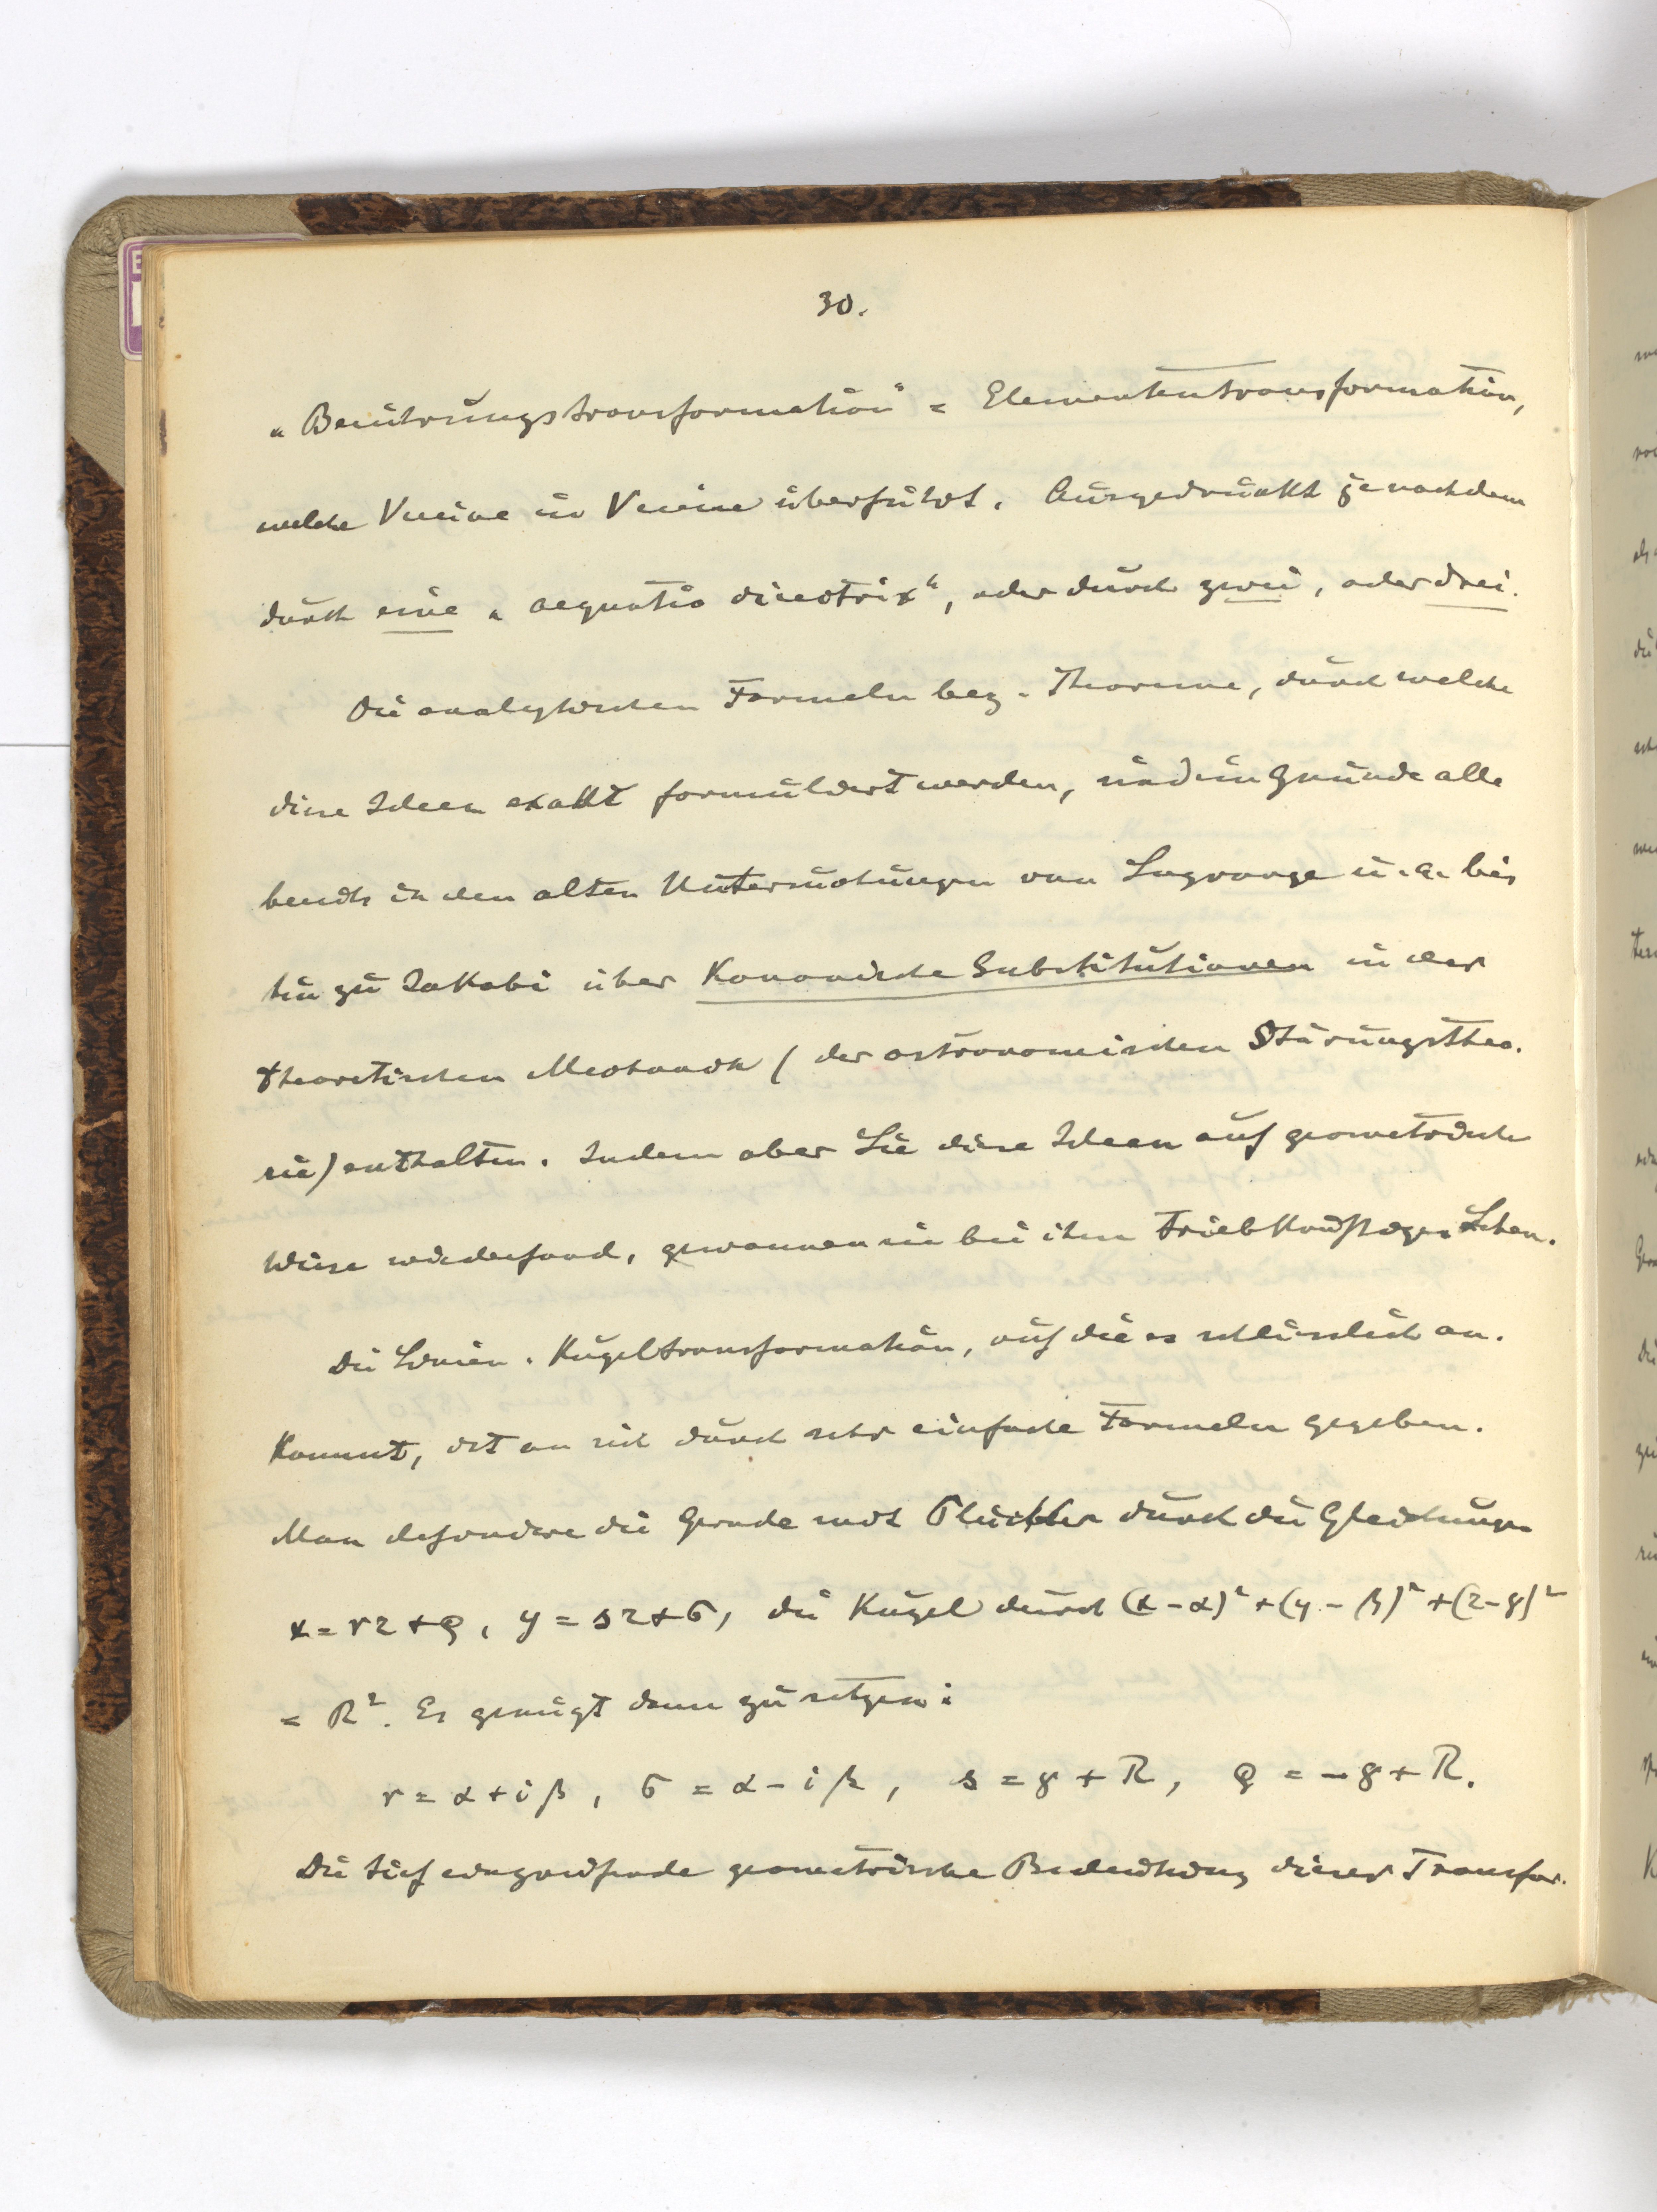 30.
„Berührungstransformation“ = Elemententransformation,
welche Vereine in Vereine überführt. Ausgedrückt je nachdem
durch eine „aequatio directrix“, oder durch zwei, oder drei.
Die analytischen Formeln bez. Theoreme, durch welche
diese Ideen exakt formuliert werden, sind im Grunde alle
bereits in den alten Untersuchungen von Lagrange u. a. bis
hin zu Jakobi über Kanonische Substitutionen in der
theoretischen Mechanik (der astronomischen Störungstheo-
rie) enthalten. Indem aber Lie diese Ideen auf geometrische
Weise wiederfand, gewannen sie bei ihm triebkräftiges Leben.
Die Linien-Kugeltransformation, auf die es schliesslich an-
kommt, ist an sich durch sehr einfache Formeln gegeben.
Man definiere die Gerade mit Plücker durch die Gleichungen
x = rz + ρ, y = sz + σ, die Kugel durch (x - α)² + (y - β)² + (z - γ)²
= R². Es genügt dann zu setzen:
r = α + iβ, σ = α - iβ, s = γ + R, ρ = -γ + R.
Die tief eingreifende geometrische Bedeutung dieser Transfor-